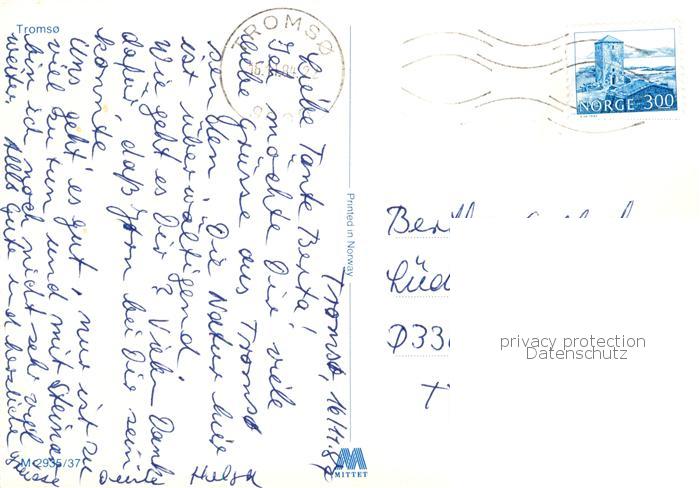 Tromsø
TROMSØ
NORGE 300
Tromsø, 16/11.84
Liebe Tante Berta!
Ich möchte Dir viele
liebe Grüsse aus Tromsø
senden. Die Natur hier
ist überwältigend.
Wie geht es Dir? Vielen Dank
dafür, daß Jörn bei Dir sein
konnte.
Uns geht es gut, nur ist zu
viel zu tun und mit
bin ich noch nicht sehr viel
weiter. Alles Gute und herzliche Grüsse
Deine Helga
Printed in Norway
Lüd
D33
privacy protection
Datenschutz
M-2935/37
MITTET